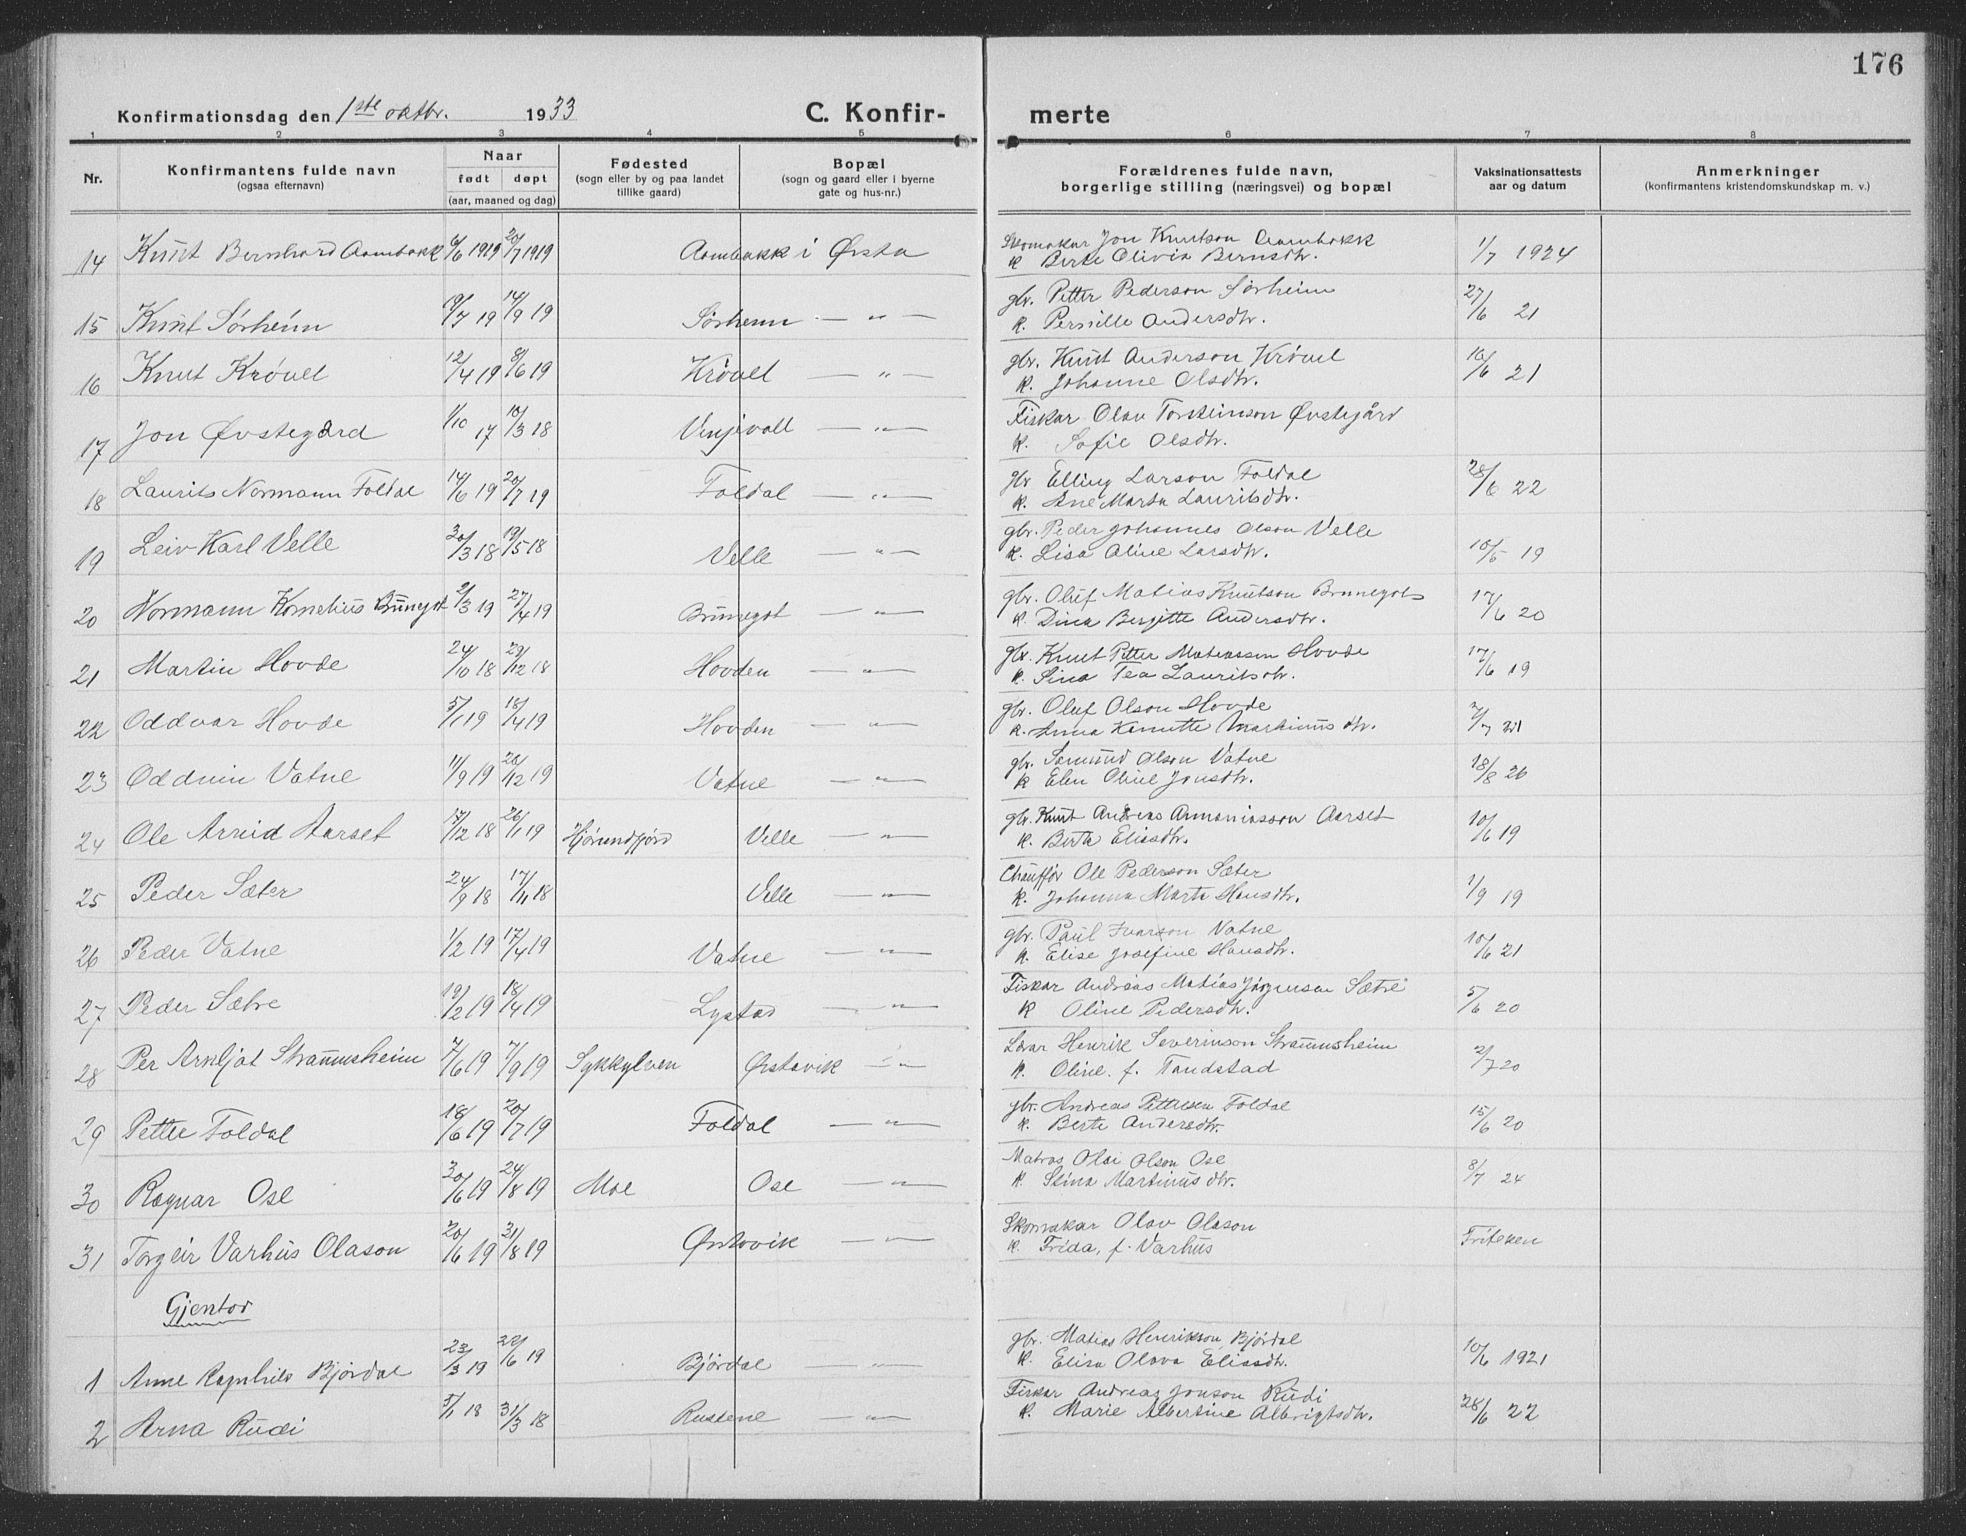 176
Konfirmationsdag den 1ste oktbr. 1933 C. Konfir-
merte
1 2 3 4 5 6 7 8
Nr. Konfirmantens fulde navn (ogsaa efternavn) Naar født døpt (aar, maaned og dag) Fødested (sogn eller by og paa landet tillike gaard) Bopæl (sogn og gaard eller i byerne gate og hus-nr.) Forældrenes fulde navn, borgerlige stilling (næringsvei) og bopæl Vaksinationsattests aar og datum Anmerkninger (konfirmantens kristendomskundskap m. v.)
14 Knut Bernhard Aambakk 6/6 1919 20/7 1919 Aambakk i Ørsta Skomakar Jon Knutson Aambakk 1/7 1924
k Berte Olivia Bernsdtr.
15 Knut Sørheim 9/7 19 14/9 19 Sørheim — " — gbr. Petter Pederson Sørheim 27/6 21
k. Pernille Andersdtr.
16 Knut Krøvel 12/4 19 8/6 19 Krøvel — " — gbr. Knut Anderson Krøvel 16/6 21
k. Johanne Olsdtr.
17 Jon Øvstegård 1/10 17 10/3 18 Vinjevoll — " — Fiskar Olav Torsteinson Øvstegård
k. Sofie Olsdtr.
18 Laurits Normann Foldal 14/6 19 20/7 19 Foldal — " — gbr Elling Larson Foldal 28/6 22
k. Ane Marta Lauritsdtr.
19 Leiv Karl Velle 30/3 18 19/5 18 Velle — " — gbr. Peder Johannes Olson Velle 10/5 19
k. Lisa Oline Larsdtr.
20 Normann Kornelius Brunegot 2/3 19 27/4 19 Brunegot — " — gbr. Oluf Matias Knutson Brunegot 17/6 20
k. Dina Bergitte Andersdtr.
21 Martin Hovde 24/10 18 29/12 18 Hovden — " — gbr. Knut Petter Matiassen Hovde 17/6 19
k. Sina Tea Lauritsdtr.
22 Oddvar Hovde 5/1 19 18/4 19 Hovden — " — gbr. Oluf Olson Hovde 2/7 21
k. Anna Kanutte Martinusdtr.
23 Oddvin Vatne 11/9 19 26/12 19 Vatne — " — gbr. Samund Olson Vatne 18/8 26
k Elen Oline Jonsdtr.
24 Ole Arvid Aarset 17/12 18 26/1 19 Hjørundfjord Velle — " — gbr. Knut Andreas Ananiasson Aarset 10/6 19
k. Berta Eliasdtr.
25 Peder Sæter 24/9 18 17/11 18 Velle — " — Chauffør Ole Pederson Sæter 1/9 19
k. Johanna Marta Hansdtr.
26 Peder Vatne 1/2 19 17/4 19 Vatne — " — gbr. Paul Ivarson Vatne 10/6 21
k. Elise Josefine Hansdtr.
27 Peder Sætre 19/2 19 18/4 19 Lystad — " — Fiskar Andreas Matias Jørgensen Sætre 5/6 20
k Oline Pedersdtr.
28 Per Arnljot Straumsheim 7/6 19 7/9 19 Sykkylven Ørstavik — " — Lærar Henrik Severinson Straumsheim 2/7 20
k. Oline f. Tandstad
29 Petter Foldal 18/6 19 20/7 19 Foldal — " — gbr. Andreas Pettersen Foldal 15/6 20
k. Berte Andersdtr.
30 Ragnar Ose 30/6 19 24/8 19 Moe Ose — " — Matros Olai Olson Ose 8/7 24
k. Stina Martinusdtr.
31 Torgeir Varhus Olason 20/6 19 31/8 19 Ørstavik — " — Skomakar Olav Olason Friteken
k. Frida, f. Varhus
Gjentor
1 Anne Ragnhild Bjørdal 23/3 19 22/6 19 Bjørdal — " — gbr. Matias Henrikson Bjørdal 10/6 1921
k. Elisa Olava Eliasdtr.
2 Arna Rudi 5/1 18 31/3 18 Rustene — " — Fiskar Andreas Jonson Rudi 28/6 22
k. Marie Albertine Albrigtsdtr.